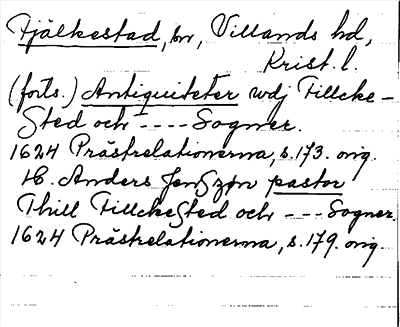 Fjälkestad, sn, Villands hd,
Krist. l.
(forts.) Antiquiteter udj Fillcke-
Sted och ---- Sogner.
1624 Prästrelationerna, s. 173. orig.
H. Anders Jenszøn pastor
Thill FillckeSted och --- Sogner.
1624 Prästrelationerna, s. 179. orig.